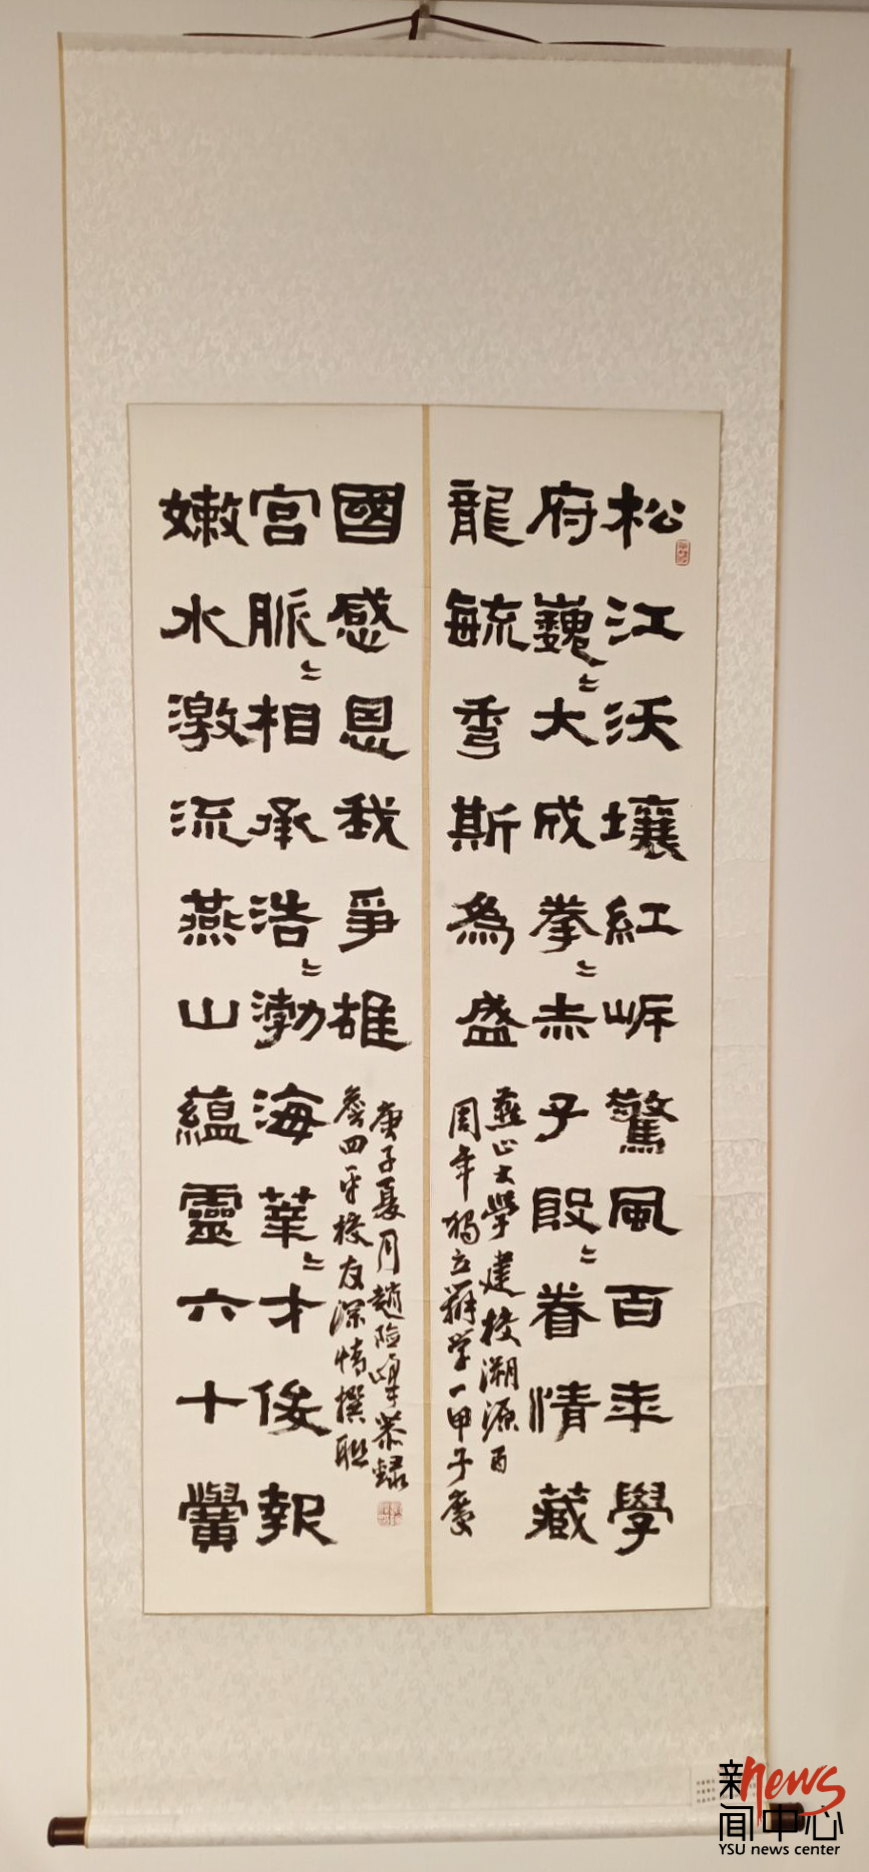 松江沃壤紅岸驚風百年學
府巍〻大成拳〻赤子殷〻眷情藏
龍毓秀斯為盛
燕山大學建校溯源百
周年獨立辦学一甲子慶
嫩水激流燕山蘊靈六十黌
宮脈〻相承浩〻渤海華〻才俊報
國感恩我爭雄
詹四平校友深情撰聯
庚子夏月趙险峰恭録
新news
闻中心
YSU news center